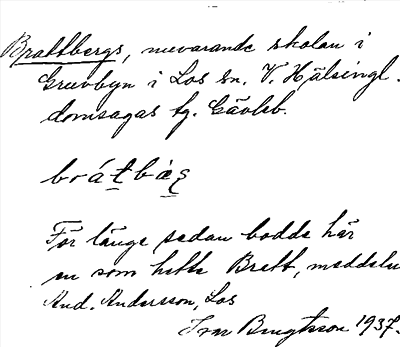 Brattbergs, nuvarande skolan i
Gruvbyn i Los sn. V. Hälsingl.
domsagas tg. Gävleb.
brátbær̨
För länge sedan bodde här
en som hette Bratt, meddelar
And. Andersson, Los
Ivar Bengtsson 1937.